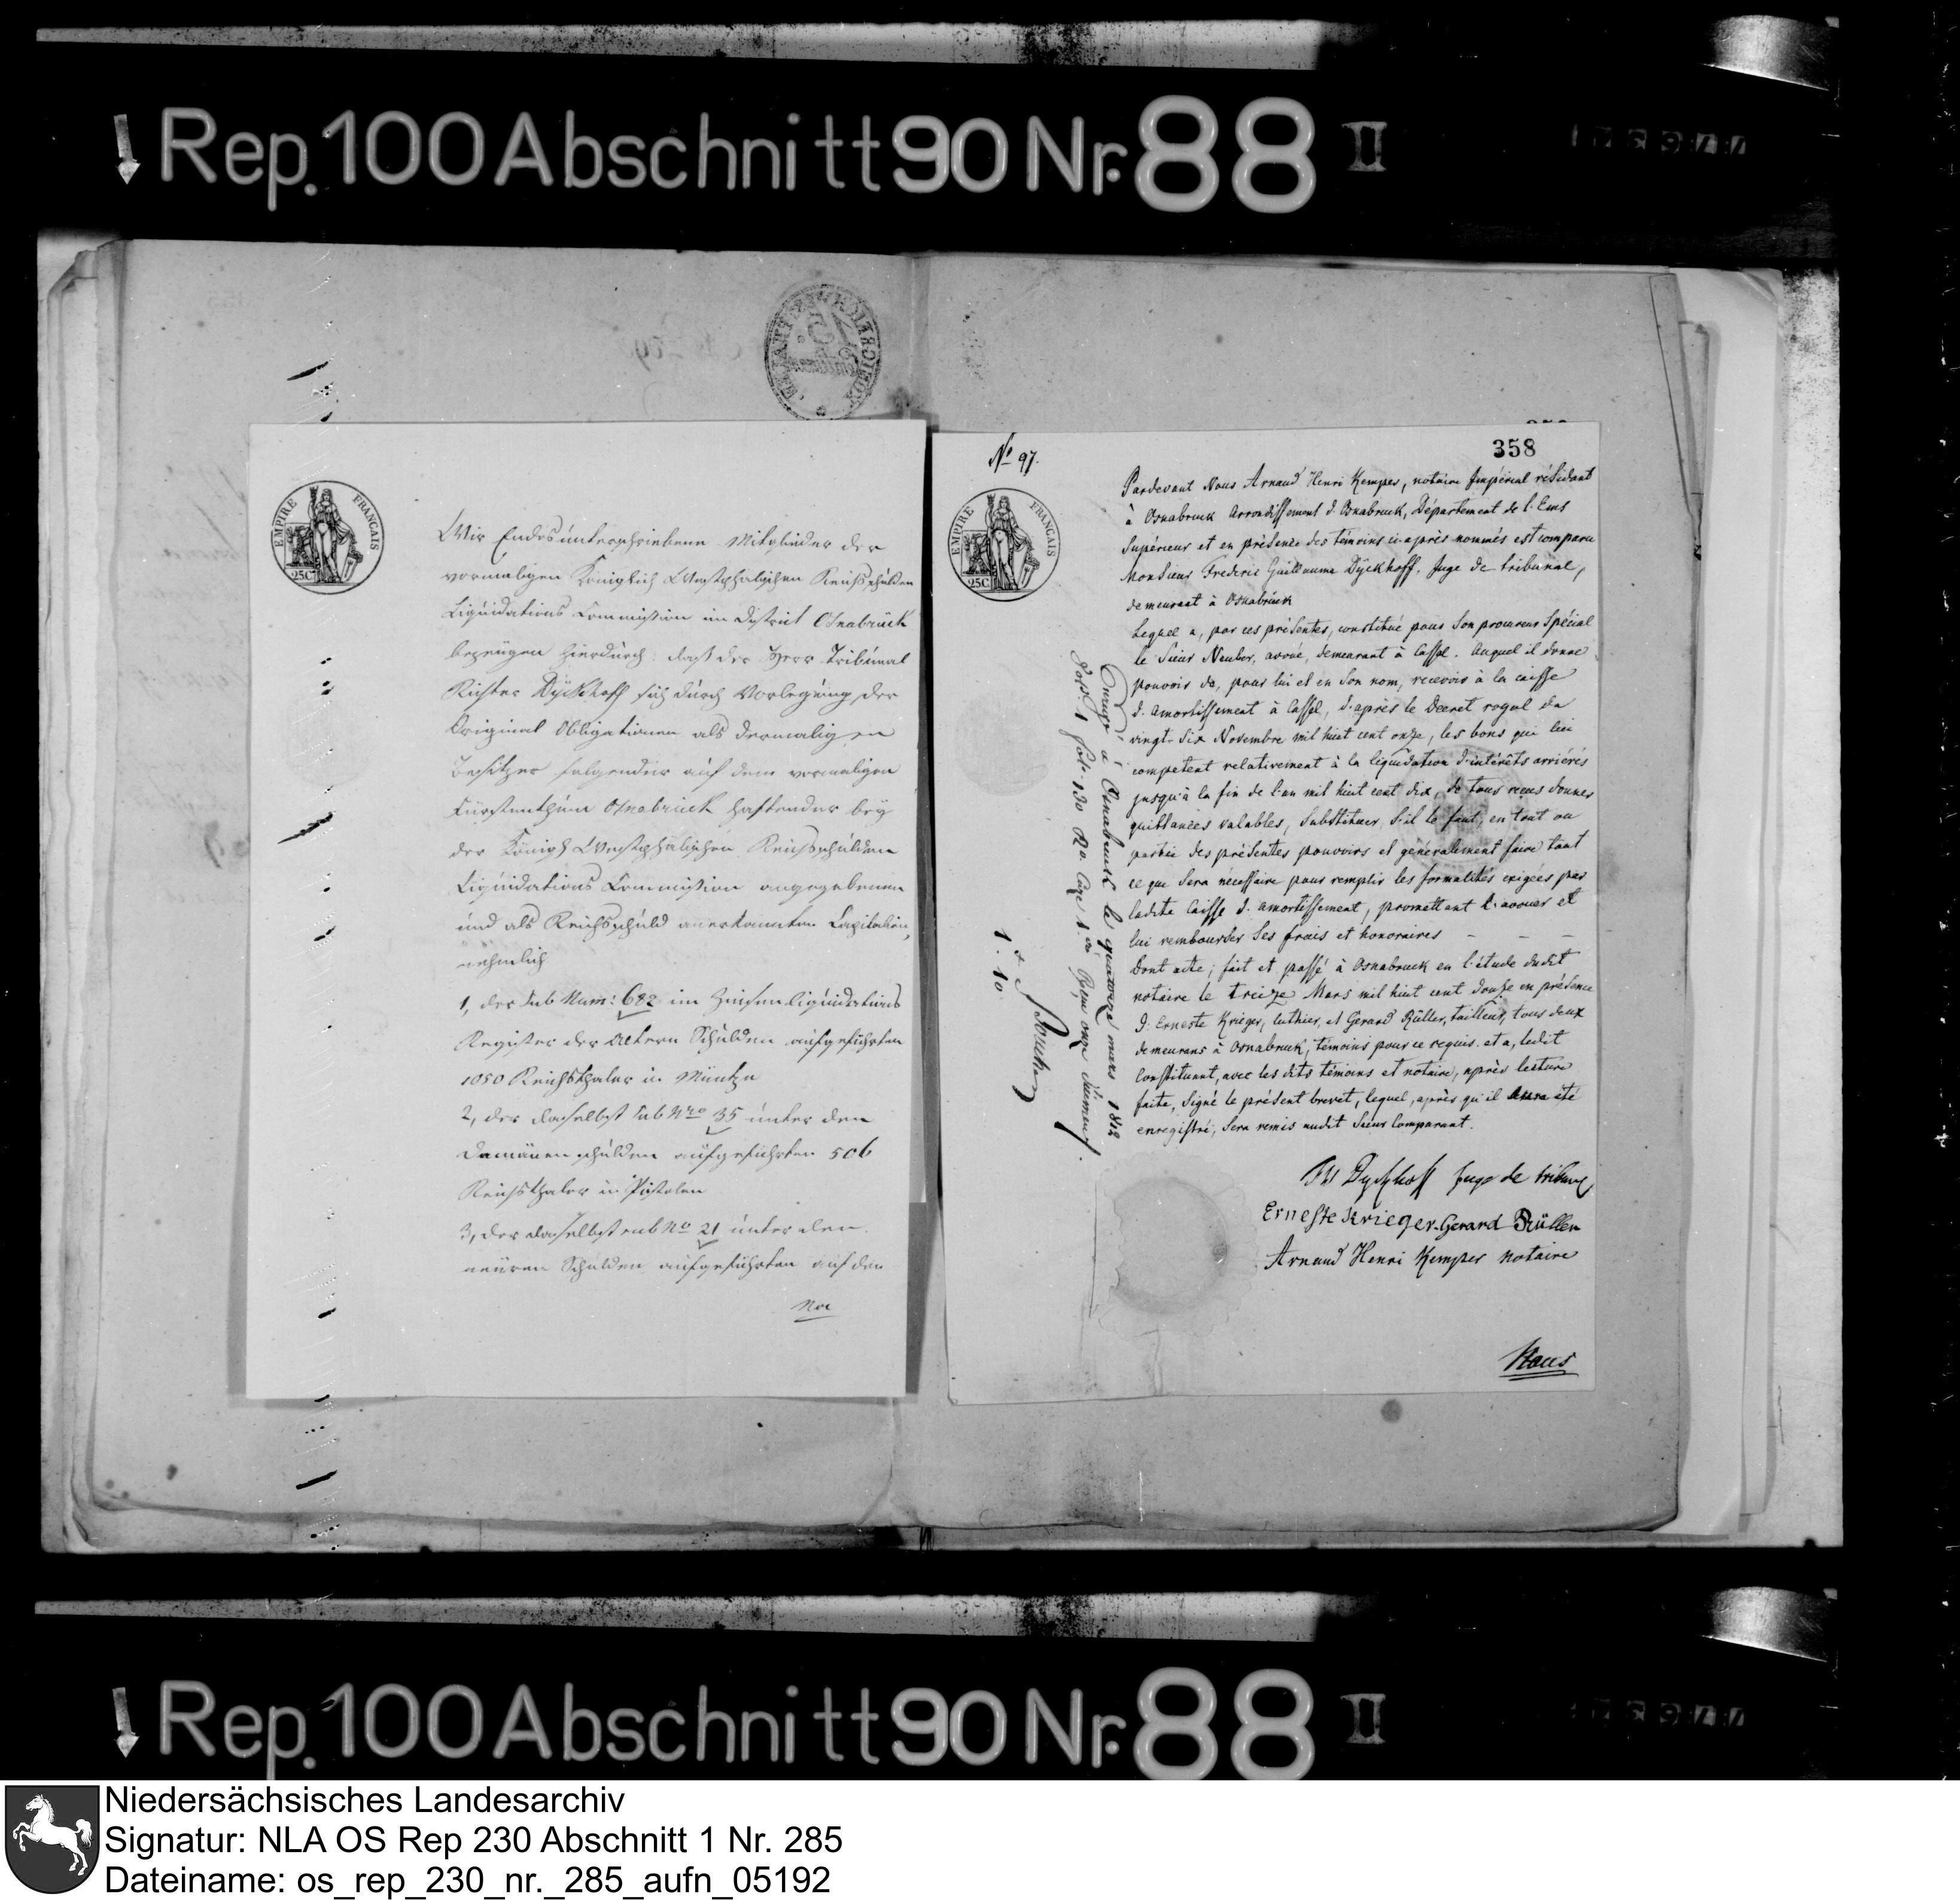 Rep. 100 Abschnitt 90 Nr. 88 II
Wir Endesunterschriebene Mitglieder der
vormaligen Königlich Westphälischen Reichsschulden
Liquidations Commission im District Osnabrück
bezeugen hierdurch: daß der Herr Tribunal
Richter Dyckhoff sich durch Vorlegung der
Original Obligationen als dermaligen
Besitzer folgender auf dem vormaligen
Fürstenthum Osnabrück haftender bey
der Königl Westphälischen Reichsschulden
Liquidations Commission angegebenen
und als Reichsschuld anerkannten Capitalien,
nehmlich
1, der sub Num: 682 im Zinsenliquidations
Register der ältern Schulden aufgeführten
1050 Reichsthaler in Müntze
2, der daselbst sub Nro 35 unter den
Domänenschulden aufgeführten 506
Reichsthaler in Pistolen
3, der daselbst sub No 21 unter den
neuren Schulden aufgeführten auf den
EMPIRE FRANCAIS
25C.
358
No 97.
EMPIRE FRANCAIS
25C.
Pardevant Nous Arnaud Henri Kemper, notaire Impérial résidant
à Osnabruck Arrondissement d'Osnabruck, Département de l'Ems
Supérieur et en présence des témoins ci-après nommés est comparu
Monsieur Frederic Guillaume Dyckhoff, Juge de tribunal,
demeurant à Osnabrück
Lequel a, par ces présentes, constitué pour son procureur Spécial
le Sieur Neuber, avoué, demeurant à Cassel. Auquel il donne
pouvoir de, pour lui et en son nom, recevoir à la caisse
d'amortissement à Cassel, d'après le Decret royal du
vingt-six Novembre mil huit cent onze, les bons qui lui
competent relativement à la liquidation d'intérêts arriérés
jusqu'à la fin de l'an mil huit cent dix, de tous reçus donner
quittances valables, substituer, s'il le faut, en tout ou
partie des présentes pouvoirs et généralement faire tout
ce que sera nécessaire pour remplir les formalités exigées par
ladite Caisse d'amortissement, promettant l'avouer et
lui rembourser ses frais et honoraires - - -
Dont acte; fait et passé à Osnabruck en l'étude dudit
notaire le treize Mars mil huit cent douze en présence
d'Erneste Krieger, luthier, et Gerard Rüller, tailleur, tous deux
demeurans à Osnabruck, témoins pour ce requis. et a, ledit
Constituant, avec les dits témoins et notaire, après lecture
faite, signé le présent brevet, lequel, après qu'il aura été
enregistré, sera remis audit Sieur Comparant.
Dyckhoff Juge de tribunal
Erneste Krieger. Gerard Rüller
Arnaud Henri Kemper notaire
Nous
Enregé à Osnabruck le quatorze mars 1812
fol. 130
1. 10
Rep. 100 Abschnitt 90 Nr. 88 II
Niedersächsisches Landesarchiv
Signatur: NLA OS Rep 230 Abschnitt 1 Nr. 285
Dateiname: os_rep_230_nr._285_aufn_05192